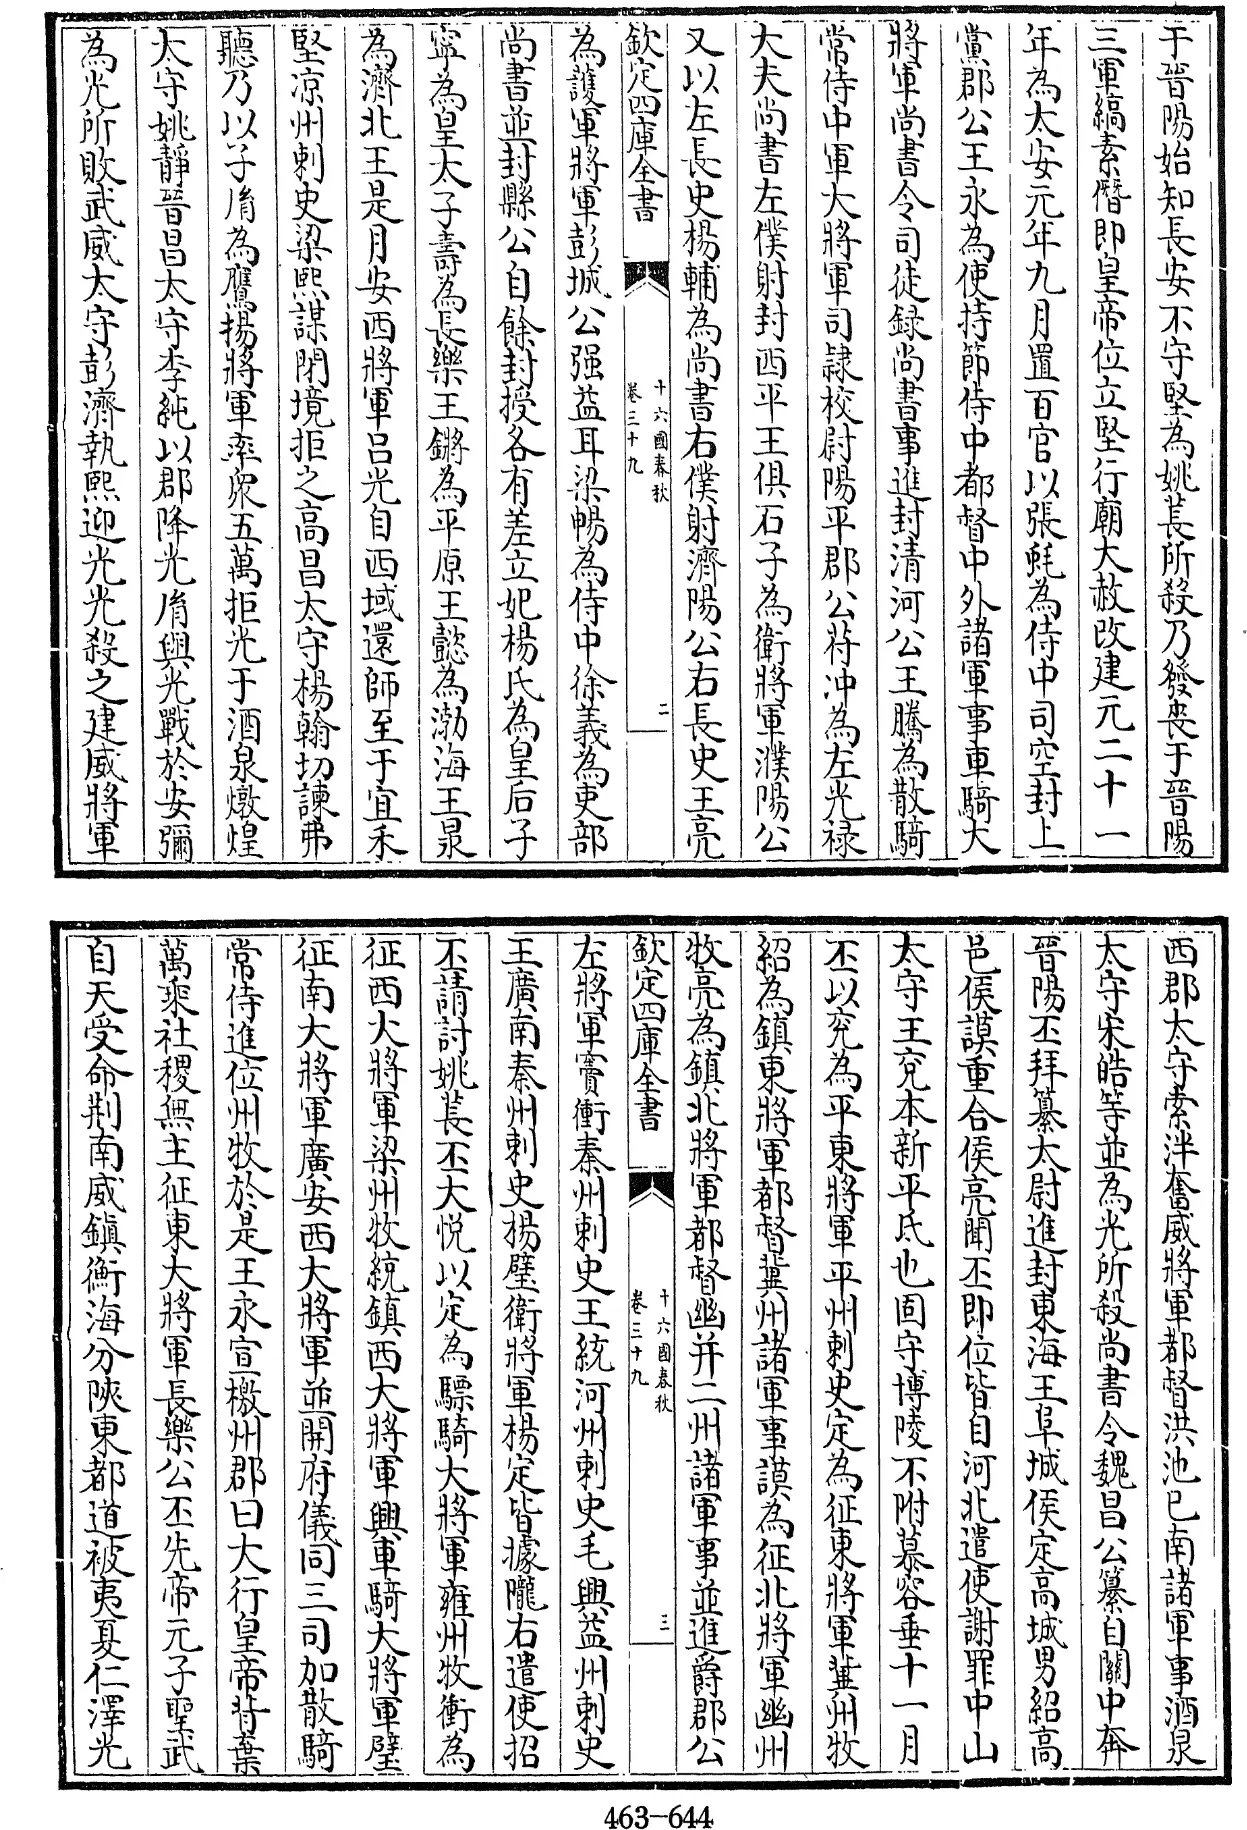 于晉陽始知長安不守堅為姚萇所殺乃發喪于晉陽
三軍縞素僭即皇帝位立堅行廟大赦改建元二十一
年為太安元年九月置百官以張蚝為侍中司空封上
黨郡公王永為使持節侍中都督中外諸軍事車騎大
將軍尚書令司徒録尚書事進封清河公王騰為散騎
常侍中軍大將軍司隸校尉陽平郡公苻沖為左光禄
大夫尚書左僕射封西平王俱石子為衛將軍濮陽公
又以左長史楊輔為尚書右僕射濟陽公右長史王亮
欽定四庫全書
十六國春秋
卷三十九
二
為護軍將軍彭城公强益耳梁暢為侍中徐義為吏部
尚書並封縣公自餘封授各有差立妃楊氏為皇后子
寧為皇太子壽為長樂王鏘為平原王懿為渤海王泉
為濟北王是月安西將軍吕光自西域還師至于宜禾
堅凉州刺史梁熙謀閉境拒之高昌太守楊翰切諫弗
聽乃以子胤為鷹揚將軍率衆五萬拒光于酒泉燉煌
太守姚靜晉昌太守李純以郡降光胤與光戰於安彌
為光所敗武威太守彭濟執熙迎光光殺之建威將軍
西郡太守索泮奮威將軍都督洪池已南諸軍事酒泉
太守宋皓等並為光所殺尚書令魏昌公纂自關中奔
晉陽丕拜纂太尉進封東海王阜城侯定高城男紹高
邑侯謨重合侯亮聞丕即位皆自河北遣使謝罪中山
太守王兖本新平氐也固守博陵不附慕容垂十一月
丕以兖為平東將軍平州刺史定為征東將軍冀州牧
紹為鎮東將軍都督冀州諸軍事謨為征北將軍幽州
牧亮為鎮北將軍都督幽并二州諸軍事並進爵郡公
欽定四庫全書
十六國春秋
卷三十九
三
左將軍竇衝秦州刺史王統河州刺史毛興益州刺史
王廣南秦州刺史楊璧衛將軍楊定皆據隴右遣使招
丕請討姚萇丕大悦以定為驃騎大將軍雍州牧衝為
征西大將軍梁州牧統鎮西大將軍興車騎大將軍璧
征南大將軍廣安西大將軍並開府儀同三司加散騎
常侍進位州牧於是王永宣檄州郡曰大行皇帝背棄
萬乘社稷無主征東大將軍長樂公丕先帝元子聖武
自天受命荆南威鎮衡海分陝東都道被夷夏仁澤光
463-644